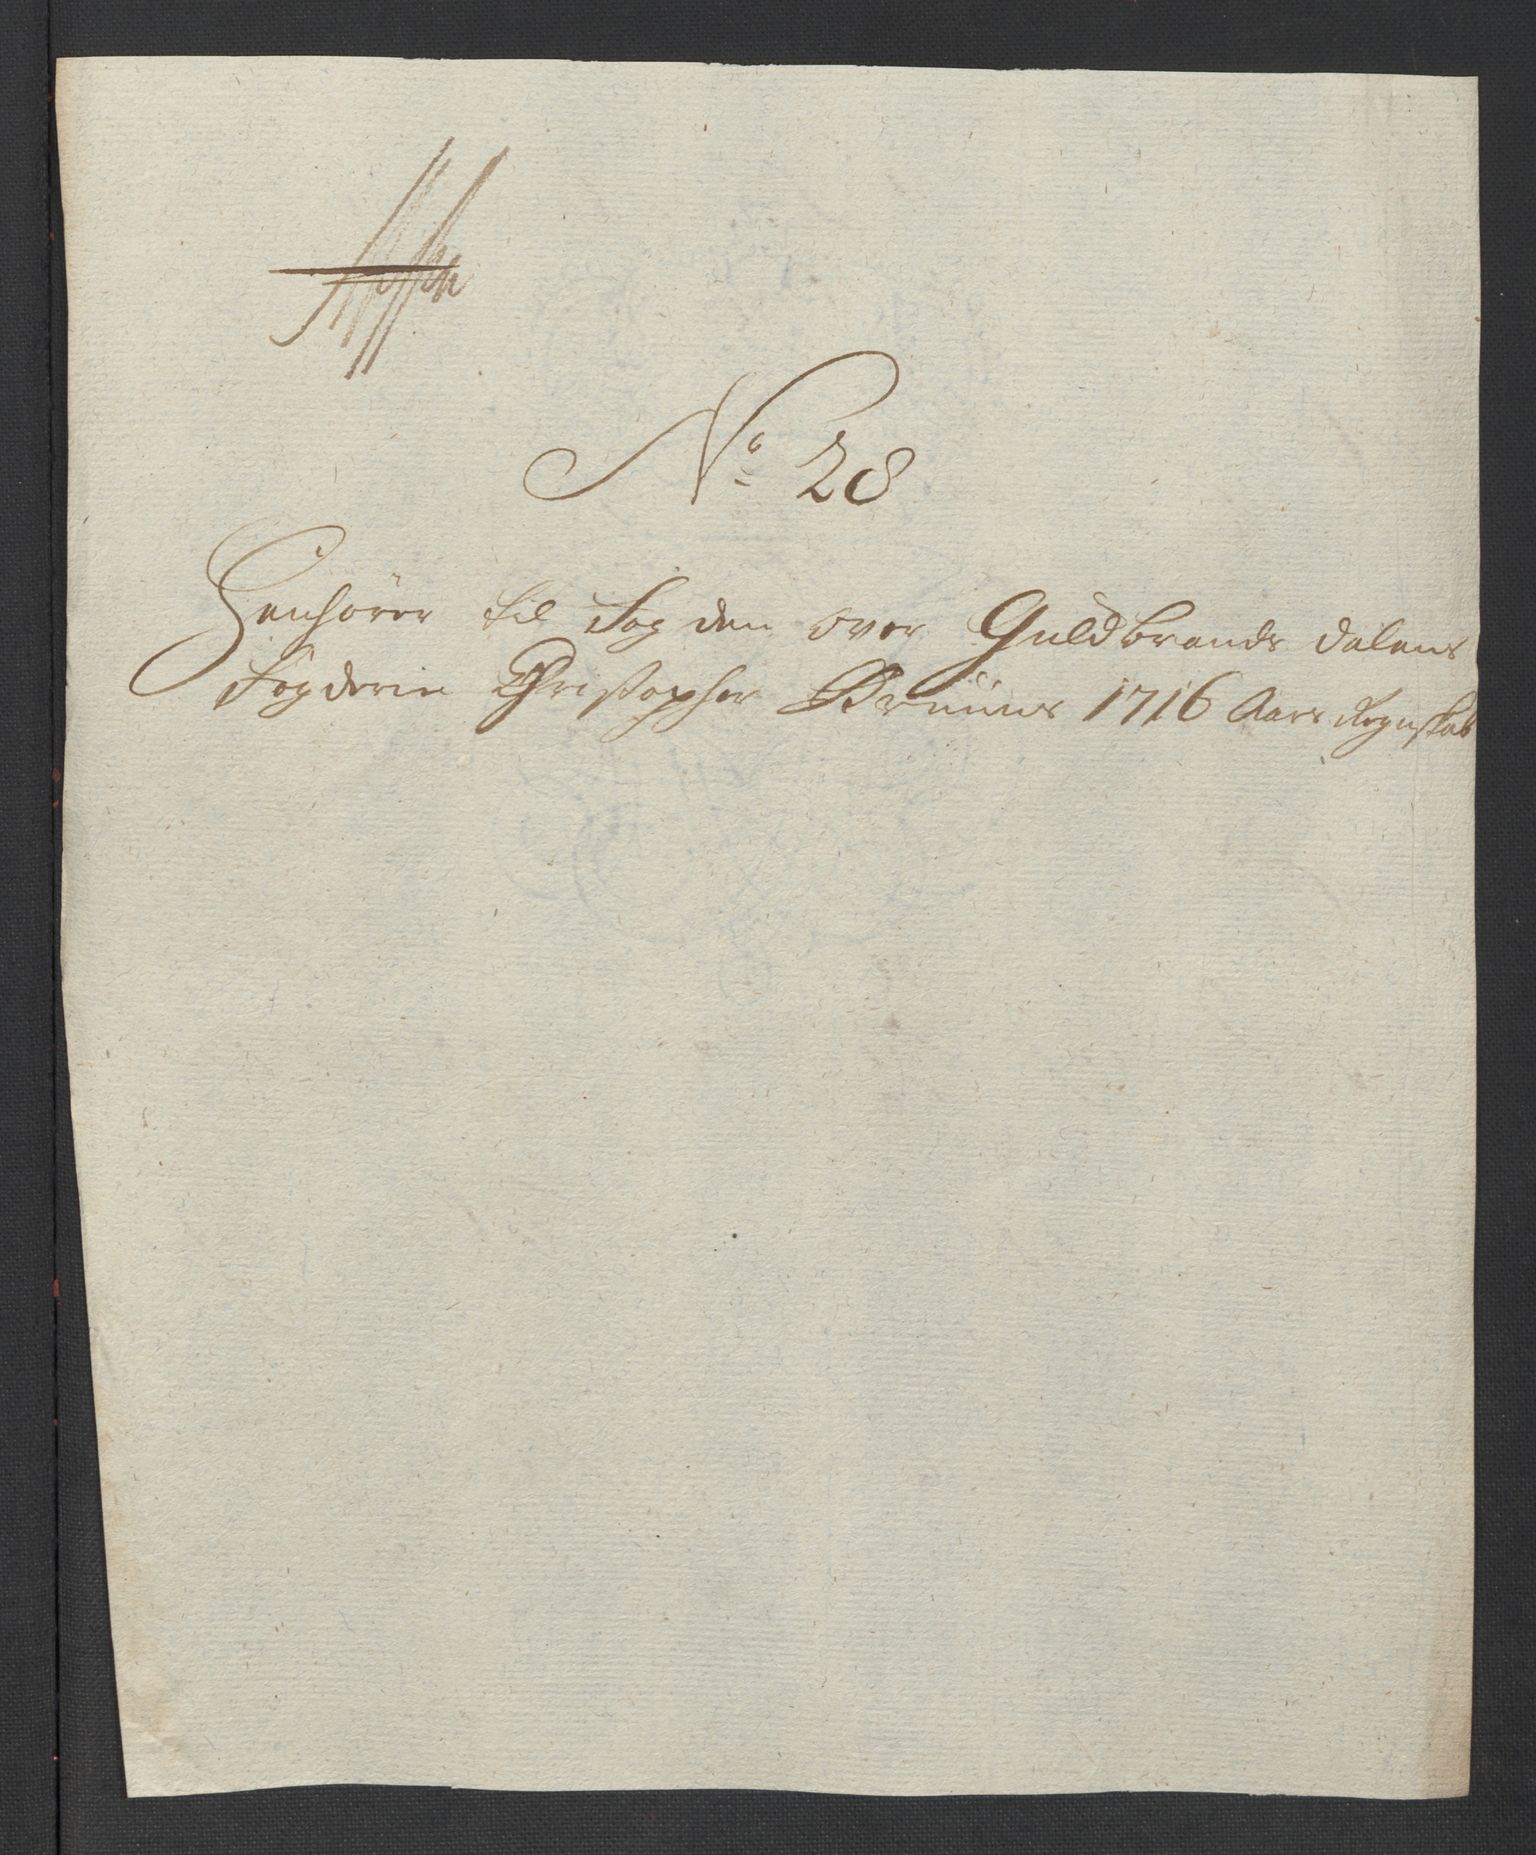 No 28
Henhörer til Fogden over Guldbrands dalens
Fogderie Christopher Bruuns 1716 Aars Regnskab